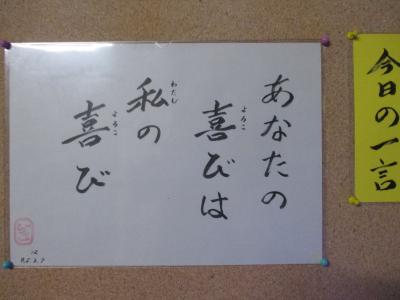 今日の一言
あなたの
喜びは
よろこ
私の
わたし
喜び
よろこ